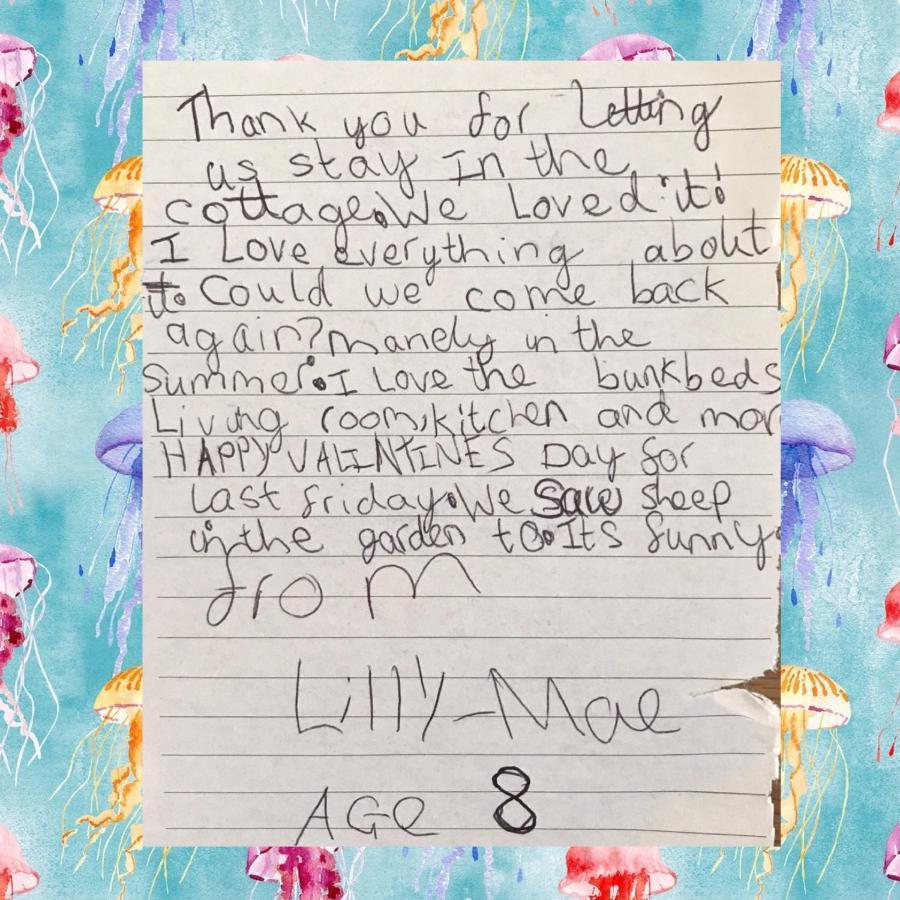 Thank you for Letting
us stay In the
cottage. We Loved it!
I Love everything about
it. Could we come back
again? manely in the
summer. I Love the bunkbeds
Living room, kitchen and mor
HAPPY VALINTINES Day for
Last friday. We Saw sheep
in the garden to. Its funny
from
Lilly-Mae
AGe 8